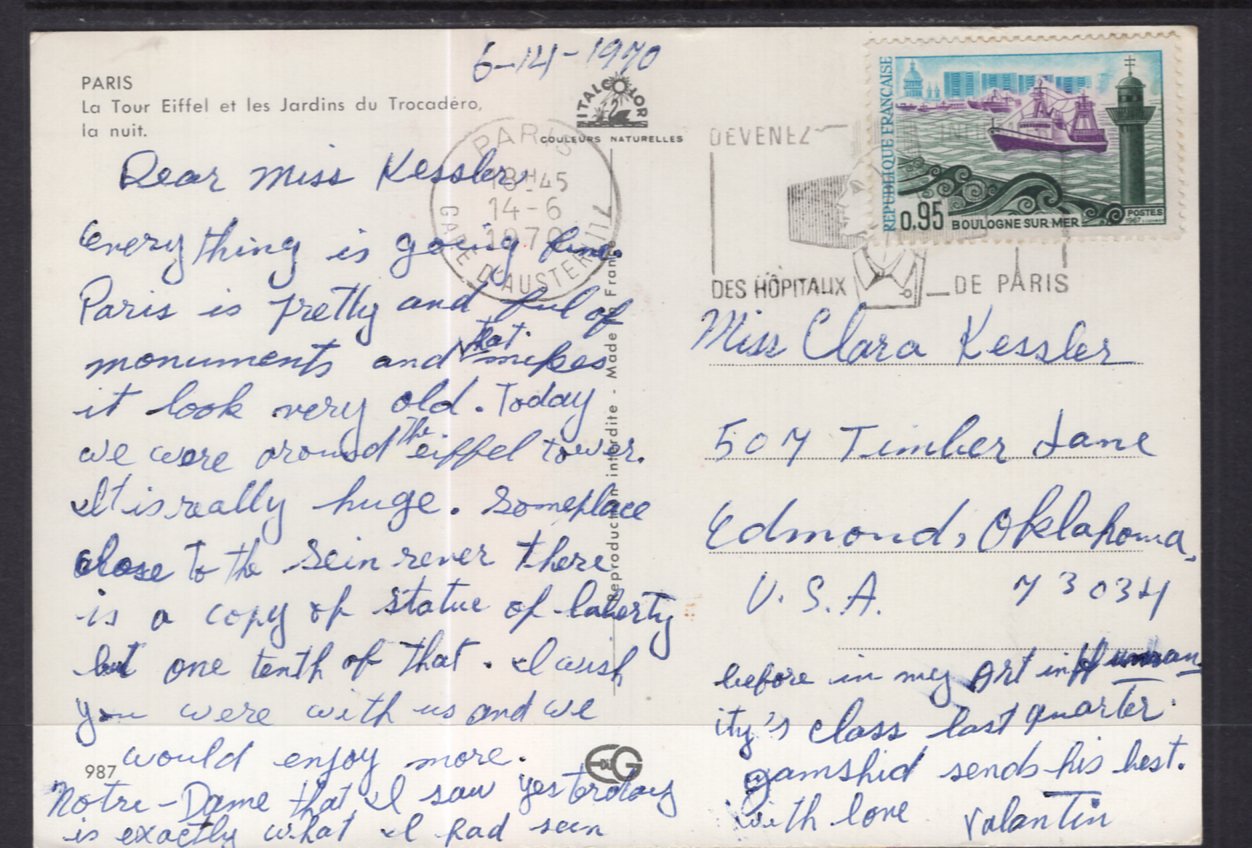 6-14-1970
PARIS
La Tour Eiffel et les Jardins du Trocadéro,
la nuit.
ITALCOLOR
COULEURS NATURELLES
PARIS
18H45
14-6
1970
GARE D'AUSTERLITZ
DEVENEZ
DES HÔPITAUX DE PARIS
REPUBLIQUE FRANÇAISE
0,95 BOULOGNE SUR MER
POSTES
1967
Dear Miss Kessler,
Everything is going fine.
Paris is pretty and ful of
monuments and that makes
it look very old. Today
we were around The eiffel tower.
It is really huge. Someplace
close to the Sein rever there
is a copy of statue of laberty
but one tenth of that. I wish
you were with us and we
would enjoy more.
Notre-Dame that I saw yesterday
is exactly what I had seen
before in my Art in Human
ity's class last quarter.
Jamshid sends his best.
with love Valantin
Miss Clara Kessler
507 Timber Lane
Edmond, Oklahoma,
U.S.A. 73034
Reproduction interdite - Made in France
987